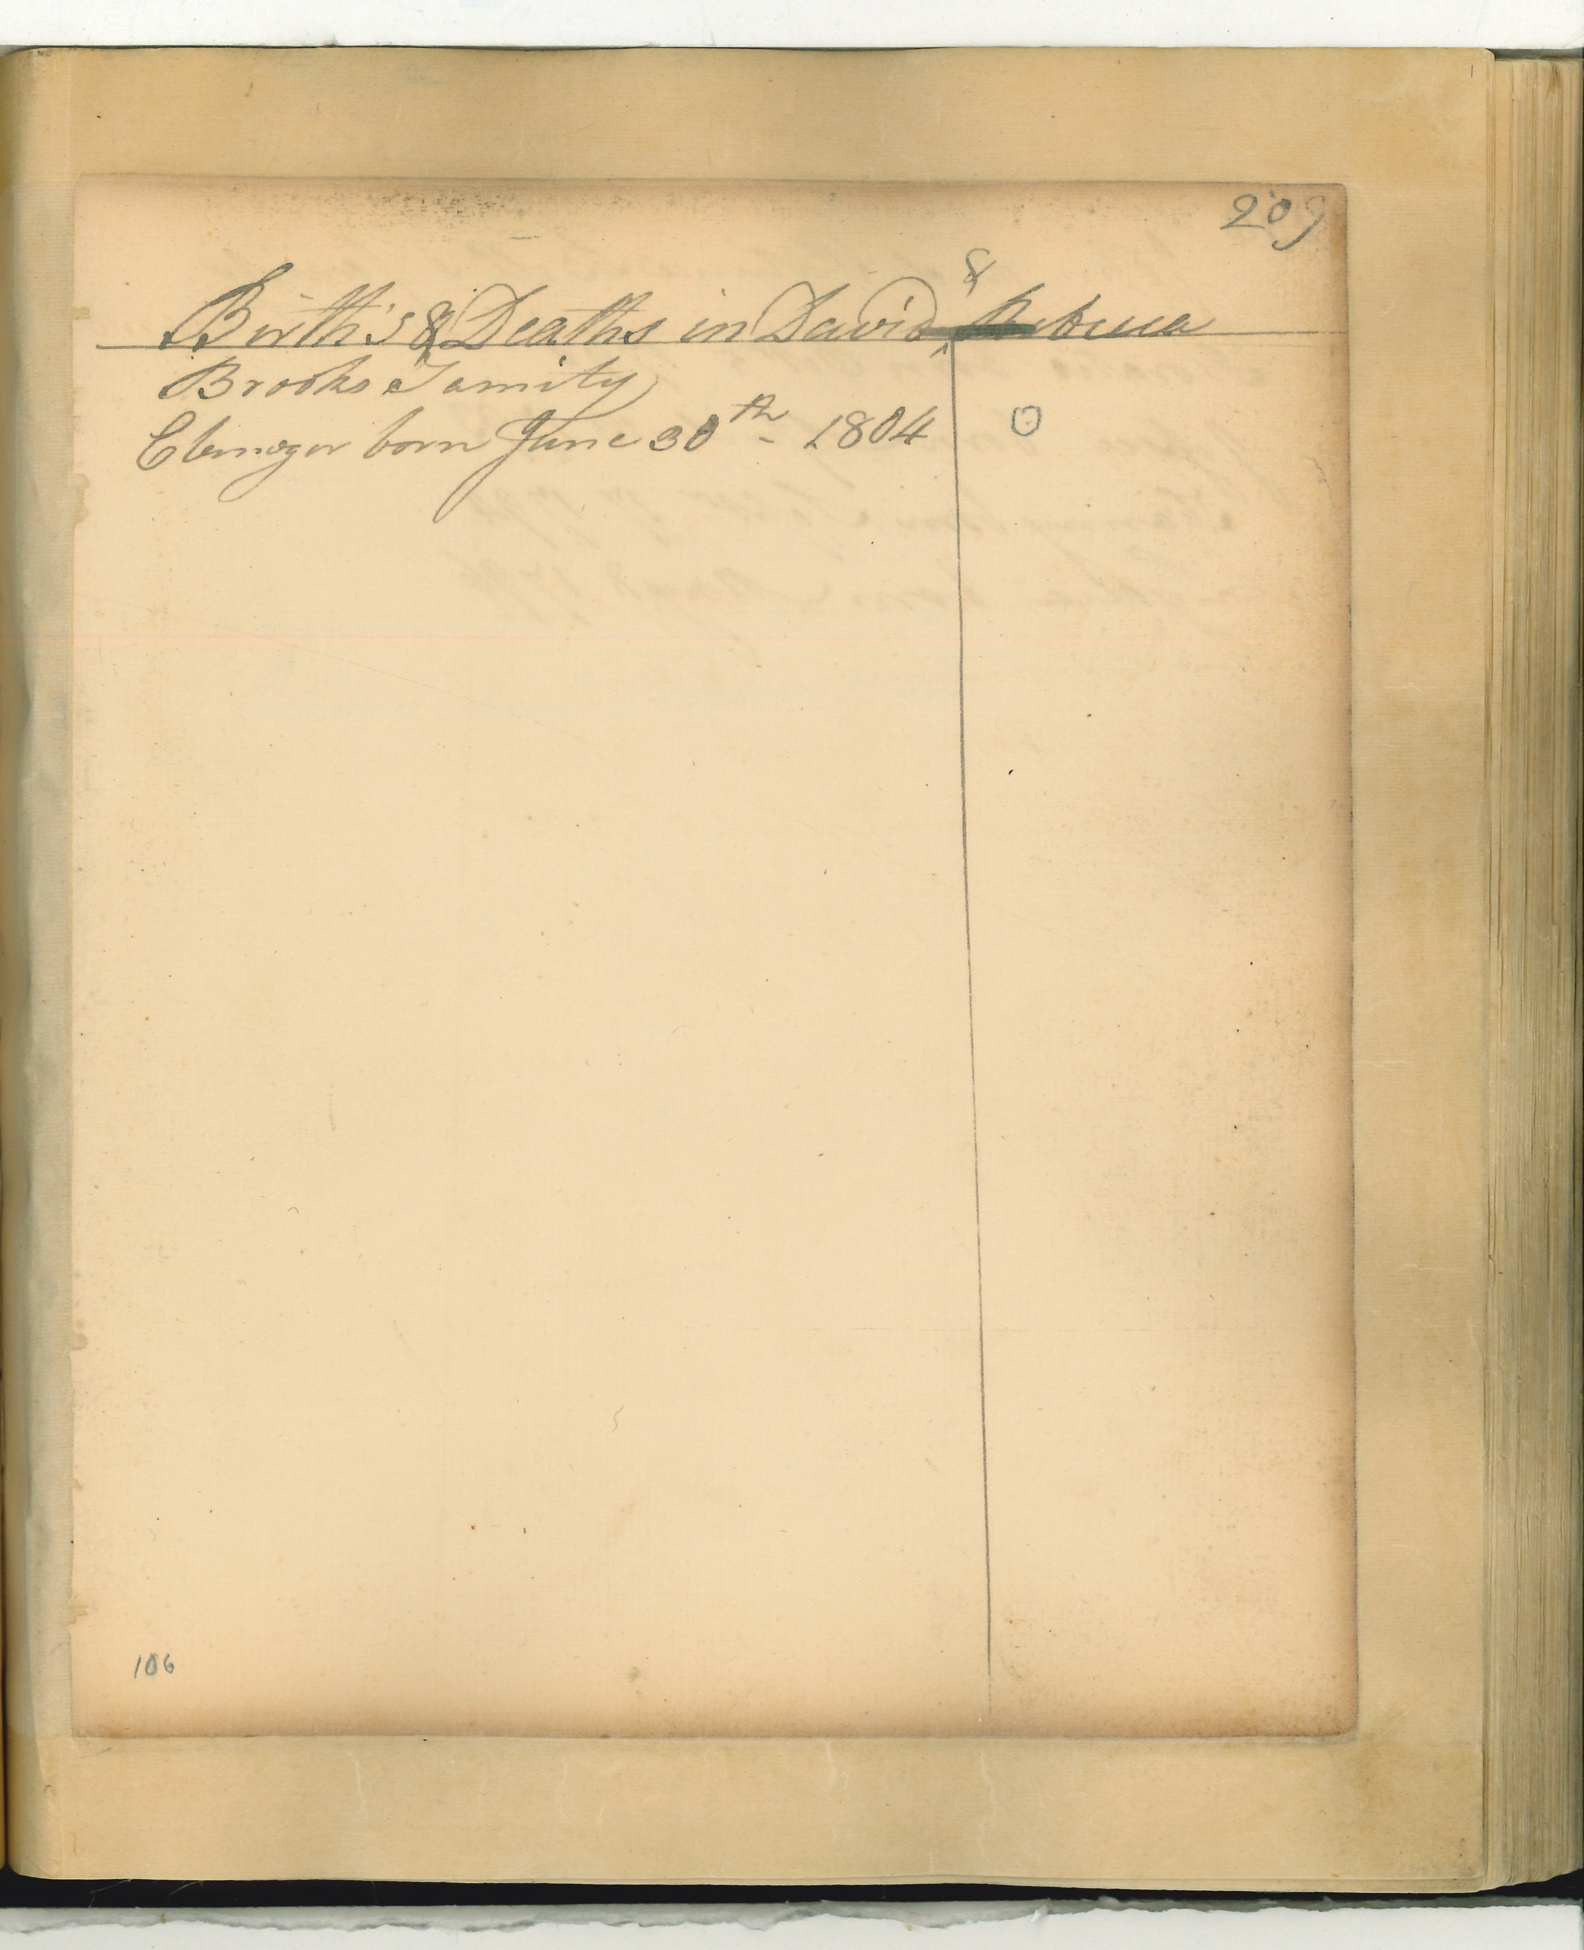 209
Birth's & Deaths in David & Rebecca
Brooks Family
Ebenezer born June 30th - 1804
106